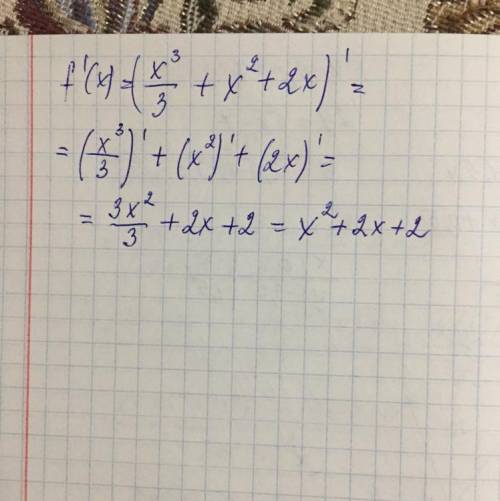 f'(x) = (x³/3 + x² + 2x)' =
= (x³/3)' + (x²)' + (2x)' =
= 3x²/3 + 2x + 2 = x² + 2x + 2